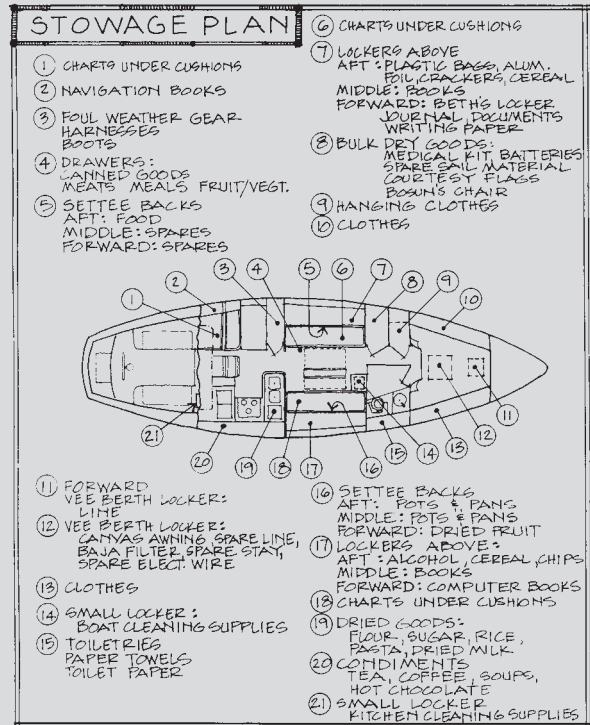 STOWAGE PLAN
① CHARTS UNDER CUSHIONS
② NAVIGATION BOOKS
③ FOUL WEATHER GEAR
HARNESSES
BOOTS
④ DRAWERS:
CANNED GOODS
MEATS MEALS FRUIT/VEGT.
⑤ SETTEE BACKS
AFT: FOOD
MIDDLE: SPARES
FORWARD: SPARES
⑥ CHARTS UNDER CUSHIONS
⑦ LOCKERS ABOVE
AFT: PLASTIC BAGS, ALUM.
FOIL, CRACKERS, CEREAL
MIDDLE: BOOKS
FORWARD: BETH'S LOCKER
JOURNAL, DOCUMENTS
WRITING PAPER
⑧ BULK DRY GOODS:
MEDICAL KIT, BATTERIES
SPARE SAIL MATERIAL
COURTESY FLAGS
BOSUN'S CHAIR
⑨ HANGING CLOTHES
⑩ CLOTHES
① ② ③ ④ ⑤ ⑥ ⑦ ⑧ ⑨ ⑩
21 20 19 18 17 16 15 14 13 12 11
⑪ FORWARD
VEE BERTH LOCKER:
LINE
⑫ VEE BERTH LOCKER:
CANVAS AWNING, SPARE LINE,
BAJA FILTER, SPARE STAY,
SPARE ELECT. WIRE
⑬ CLOTHES
⑭ SMALL LOCKER:
BOAT CLEANING SUPPLIES
⑮ TOILETRIES
PAPER TOWELS
TOILET PAPER
⑯ SETTEE BACKS
AFT: POTS & PANS
MIDDLE: POTS & PANS
FORWARD: DRIED FRUIT
⑰ LOCKERS ABOVE:
AFT: ALCOHOL, CEREAL, CHIPS
MIDDLE: BOOKS
FORWARD: COMPUTER BOOKS
⑱ CHARTS UNDER CUSHIONS
⑲ DRIED GOODS:
FLOUR, SUGAR, RICE,
PASTA, DRIED MILK
⑳ CONDIMENTS
TEA, COFFEE, SOUPS,
HOT CHOCOLATE
㉑ SMALL LOCKER
KITCHEN CLEANING SUPPLIES